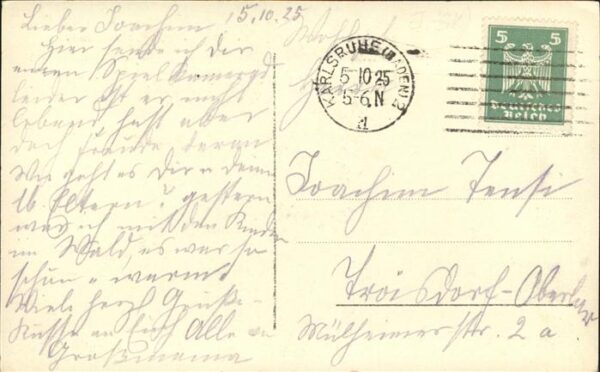 Lieber Joachim 5.10.25
Hier sende ich dir
einen Spiel Kamerad
leider ist er nicht
lebendhaft aber
doch Freude daran
Wie geht es dir u deinen
lb. Eltern? gestern
war ich mit den Kinder
im Wald, es war so
schön u warm
Viele herzl Grüße
Küsse an Euch Alle von
Großmama
KARLSRUHE (BADEN) 2
5 10 25
5-6 N
d
5 5
Deutsches
Reich
Joachim Tensi
Troisdorf-Oberlar
Mülheimerstr. 2 a